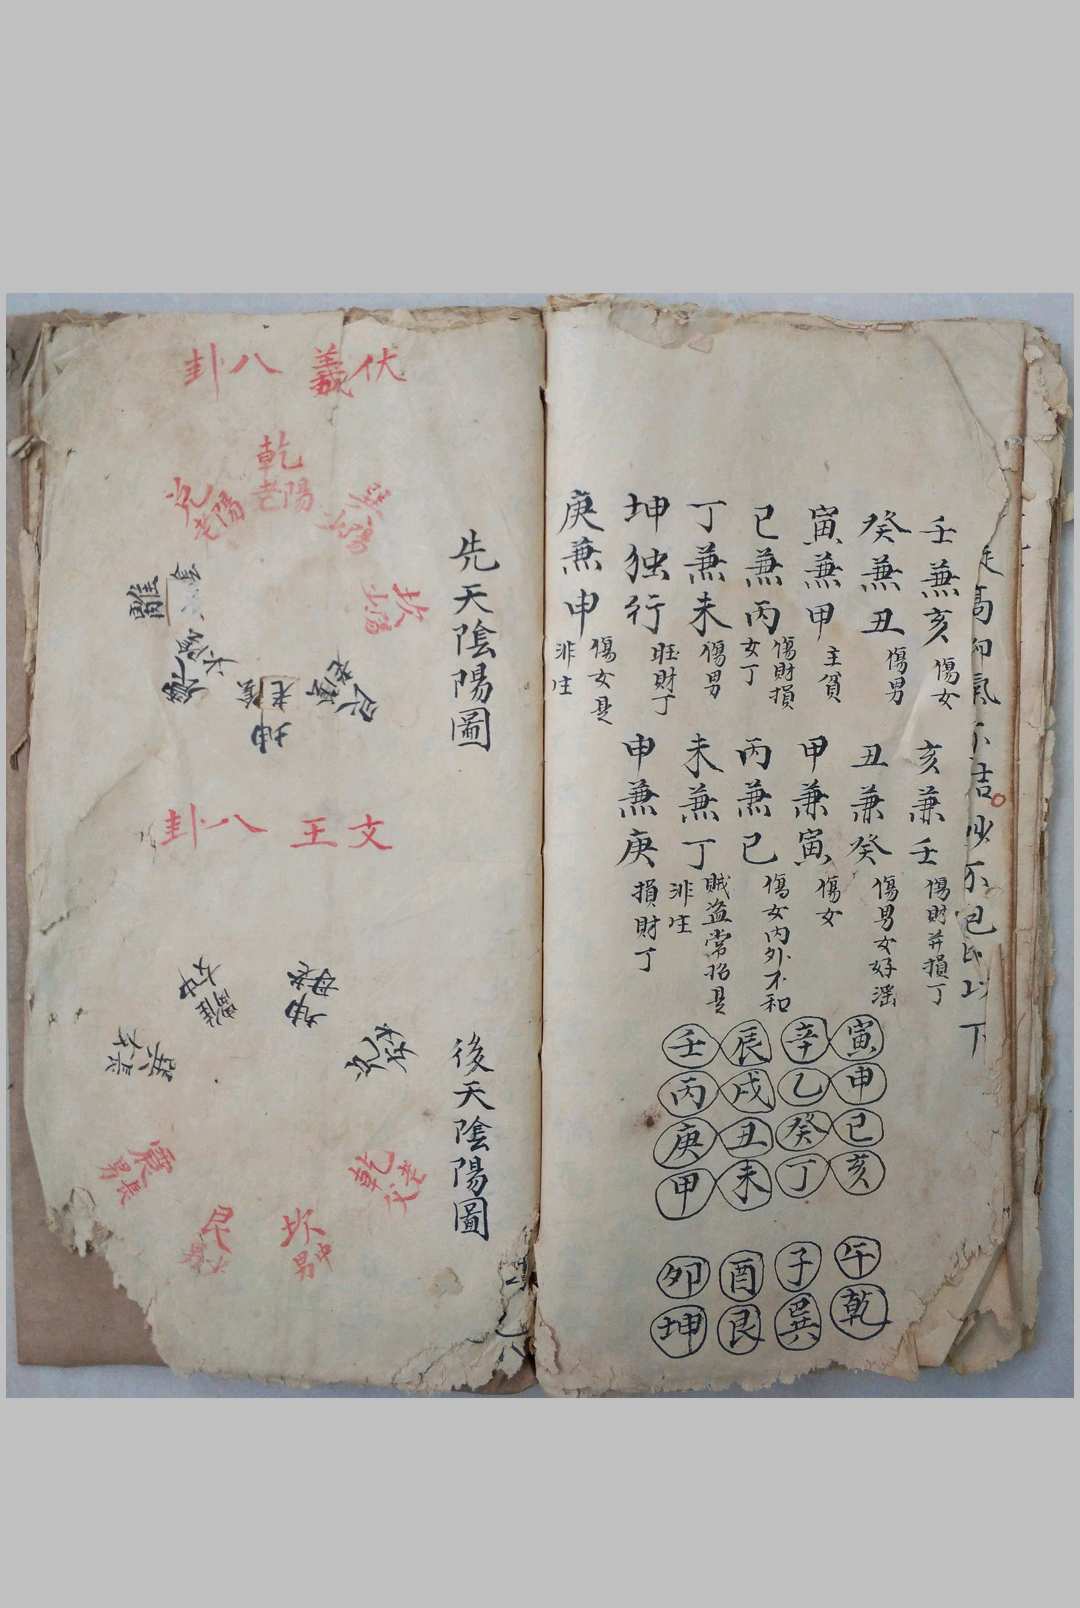 高
氣不吉
下
壬兼亥 傷女
癸兼丑 傷男
寅兼甲 主貧
已兼丙 傷財損女丁
丁兼未 傷男
坤独行 旺財丁
庚兼申 傷女是非生
亥兼壬 傷財并損丁
丑兼癸 傷男女好滛
甲兼寅 傷女
丙兼已 傷女内外不和
未兼丁 賊盗常招是非生
申兼庚 損財丁
寅申已亥
辛乙癸丁
辰戌丑未
壬丙庚甲
午乾
子巽
酉艮
卯坤
伏羲八卦
先天陰陽圖
乾
老陽
兌
老陽
坎
離
坤
老陰
艮
老陰
文王八卦
後天陰陽圖
坤
老母
離
中女
兌
少女
巽
長女
震
長男
艮
坎
中男
乾
老父